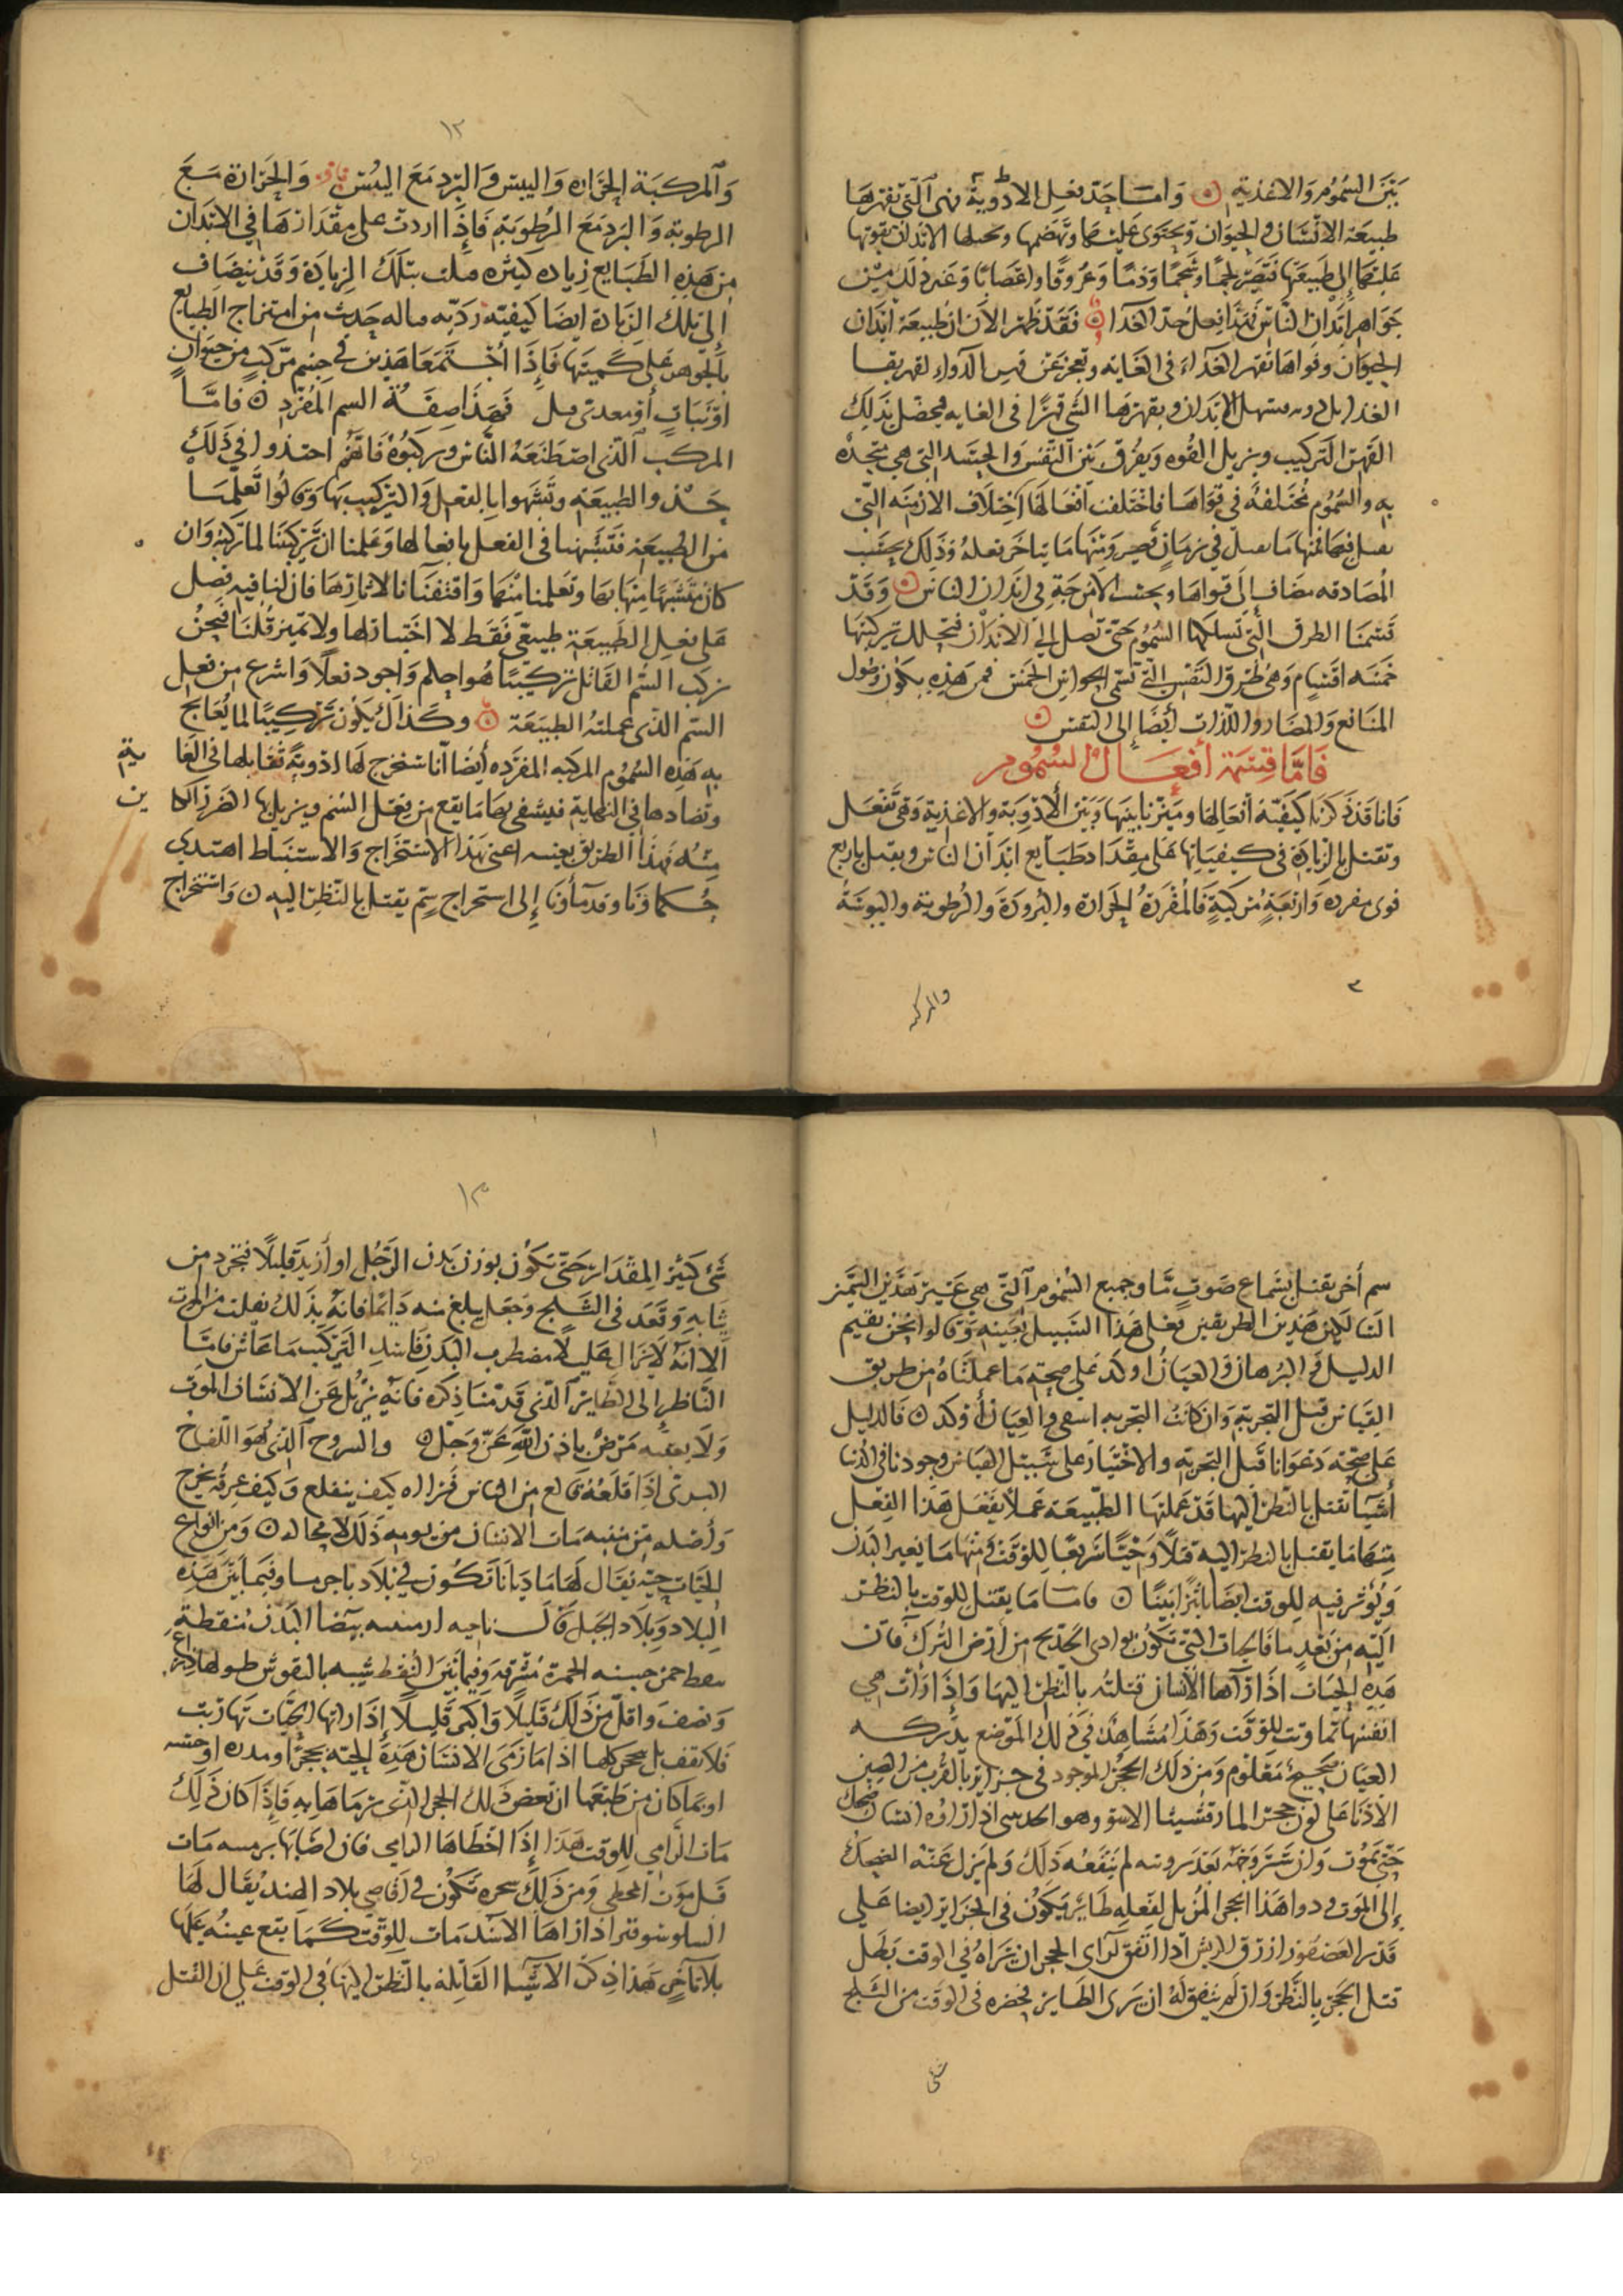 بين السموم والاغذية ٥ واما حد فعل الادوية فهى التي تقهرها
طبيعة الانسان والحيوان وتحتوى عليها وتهضمها وتحيلها الابدان بقوتها
عليها إلى طبيعتها فتصير لحمًا وشحمًا ودمًا وعروقًا واعصابًا وغير ذلك من
جواهر ابدان الناس فهذا فعل حد الغذا ٥ فقد ظهر الان ان طبيعة ابدان
الحيوان وقواها تقهر الغذاء في الغاية وتعجز عن قهر الدواء لقهر بقـا
الغذا الابدان ويقهرها الشي قهرًا في الغايه فيحصل بذلك
القهر التركيب ويزيل القوه ويفرق بين النفس والجسد التي هي متحده
به والسموم مختلفة في قواها فاختلفت افعالها اختلاف الازمنه التي
تفعل فيها فمنها ما يعمل في زمان قصير ومنها ما يتاخر فعله وذلك بحسب
المصادفه مضاف إلى قواها وبحسب الامزجة في ابدان الناس ٥ وقد
قسمنا الطرق التي تسلكها السموم حتى تصل إلى الابدان فتحلل تركيبها
خمسه اقسام وهى طرق النفس التي تسمى الحواس الخمس فمن هذه يكون وصول
المنافع والمضار واللذات أيضًا إلى النفس ٥
فاما قسمة أفعال السموم
فانا قد ذكرنا كيفية افعالها وميزنا بينها وبين الادوية والاغذية وهى تفعل
وتقتل بالزيادة في كيفياتها على مقدار طبايع ابدان الناس ويقتل باربع
قوى مفرده واربعة مركبة فالمفردة الحرارة والبرودة والرطوبة واليبوسة
٣
والمركبه
١٢
والمركبة الحرارة واليبس والبرد مع اليبس والحرارة مع
الرطوبة والبرد مع الرطوبة فإذا اردت على مقدارها في الابدان
من هذه الطبايع زياده كثيره قتلت بتلك الزيادة وقد ينضاف
إلى تلك الزيادة ايضا كيفية ردية حدث من امتزاج الطبايع
بالجوهر على كميتها فإذا اجتمعا هذين في جسم مركب من حيوان
او نبات أو معدني قتل فهذا صفة السم المفرد ٥ فامّا
المركب الذي اصطنعه الناس وركبوه فانهم احتذوا في ذلك
حذو الطبيعة وتشبهوا بالفعل والتركيب بها وقالوا تعلمنا
من الطبيعة فتشبهنا في الفعل بافعالها وعلمنا ان تركيبنا لما تركبه وان
كان متشبهًا منها بها وتعلمنا منها واقتفينا لاثارها فان لنا فيه فضل
على فعل الطبيعة طبيعي فقط لا اختيار لها ولا تمييز قلنا فنحن
نركب السم القاتل تركيبًا هو احكم واجود فعلًا واسرع من فعل
السم الذي عملته الطبيعة ٥ وكذلك يكون تركيبًا لما يعالج
به هذه السموم المركبه المفرده أيضا انا نستخرج لها ادوية تقابلها في الغا
ية
وتضادها في النهاية فيشفى بها ما يقع من فعل السم ويزيل بها الضرر الكا
ين
منه فهذا الطريق بعينه اعنى بهذا الاستخراج والاستنباط اهتدي
حكماونا وقدماونا إلى استخراج سم يقتل بالنظر اليه ٥ واستخراج
سم أخر يقتل بسماع صوت مّا وجميع السموم التي هي غير هذين السمين
لكن هذين الطريقين فعلى هذا السبيل بعينه وقالوا نحن نقيم
الدليل والبرهان والعيان اوكد على صحة ما عملناه من طريق
القياس قبل التجربة وان كانت التجربه اشفى والعيان أوكد ٥ فالدليل
على صحة دعوانا قبل التجربه والاختيار على سبيل القياس وجودنا في الدنيا
أشيا تقتل بالنظر اليها قد عملتها الطبيعة عملًا يفعل هذا الفعل
منها ما يقتل بالنظر اليه قتلًا وحيًّا سريعًا للوقت ومنها ما يغير البدن
ويؤثر فيه للوقت ايضًا اثرًا بينًا ٥ فاما ما يقتل للوقت بالنظر
اليه من بعد ما فالحيات التي تكون بوادى من أرض الترك فان
هذه الحيات اذا رآها الانسان قتلته بالنظر اليها وإذا رأت هي
انفسها تماوتت للوقت وهذا مشاهد في ذلك الموضع يدركه
العيان صحيح معلوم ومن ذلك الحجر الموجود في جزاير بالقرب من الصين
الادنا على لون حجر المارقشيثا الاسود وهو اذا راه انسان ضحك
حتى يموت وان ستر وجهه بعد رويته لم ينفعه ذلك ولم يزل عنه الضحك
إلى الموت ودوا هذا الحجر المزيل لفعله طاير يكون في الجزاير ايضا على
قدر العصفور ازرق الريش اذا اتفق لراى الحجر ان يراه في الوقت بطل
قتل الحجر بالنظر وان لم يتفق له ان يرى الطاير فحضره في الوقت من الثلج
شى
١٣
شئ كثير المقدار حتى تكون بوزن بدن الرجل او أزيد قليلًا فتجرد من
ثيابه وقعد في الثلج وجعل يبلغ منه دايمًا فانه بذلك يفلت من الموت
الا انه لا يزال عليلًا مضطرب البدن فاسد التركيب ما عاش فاما
الناظر إلى الطاير الذي قدمنا ذكره فانه يزيل عن الانسان الموت
ولا يعقبه مرض باذن الله عز وجل ٥ والسروح الذي هو اللفاح
البرى اذا قلعه قالع من الناس فراه كيف ينقلع وكيف عرقه يخرج
وأصله من منبته مات الانسان من يومه ذلك لا محاله ٥ ومن انواع
الحيات حية يقال لها مادبانا تكون في بلاد باجرما وفيما بين هذه
البلاد وبلاد الجبل ناحيه ارمينيه بيضا البدن منقطة
بنقط حمر حسنه الحمرة مشرقه وفيما بين النقط شبيه بالنقوش طولها ذراع
ونصف واقل من ذلك قليلًا واكبر قليلًا إذا راتها الحيات تهاربت
فلا تقف بل كلها اذا ما رمى الانسان هذه الحية بحجر او مدره او خشبه
او بما كان من طبعها ان تعض ذلك الحجر الذي رماها به فإذا كان ذلك
مات الرامي للوقت هذا إذا اخطاها الرامي فان اصابها برميه مات
قبل موت المخطي ومن ذلك شجره تكون في أقاصي بلاد الهند يقال لها
اذا راها الاسد مات للوقت كما يقع عينه عليها
بلا تأخر فهذا ذكر الاشيا القاتلة بالنظر اليها في الوقت على ان القتل